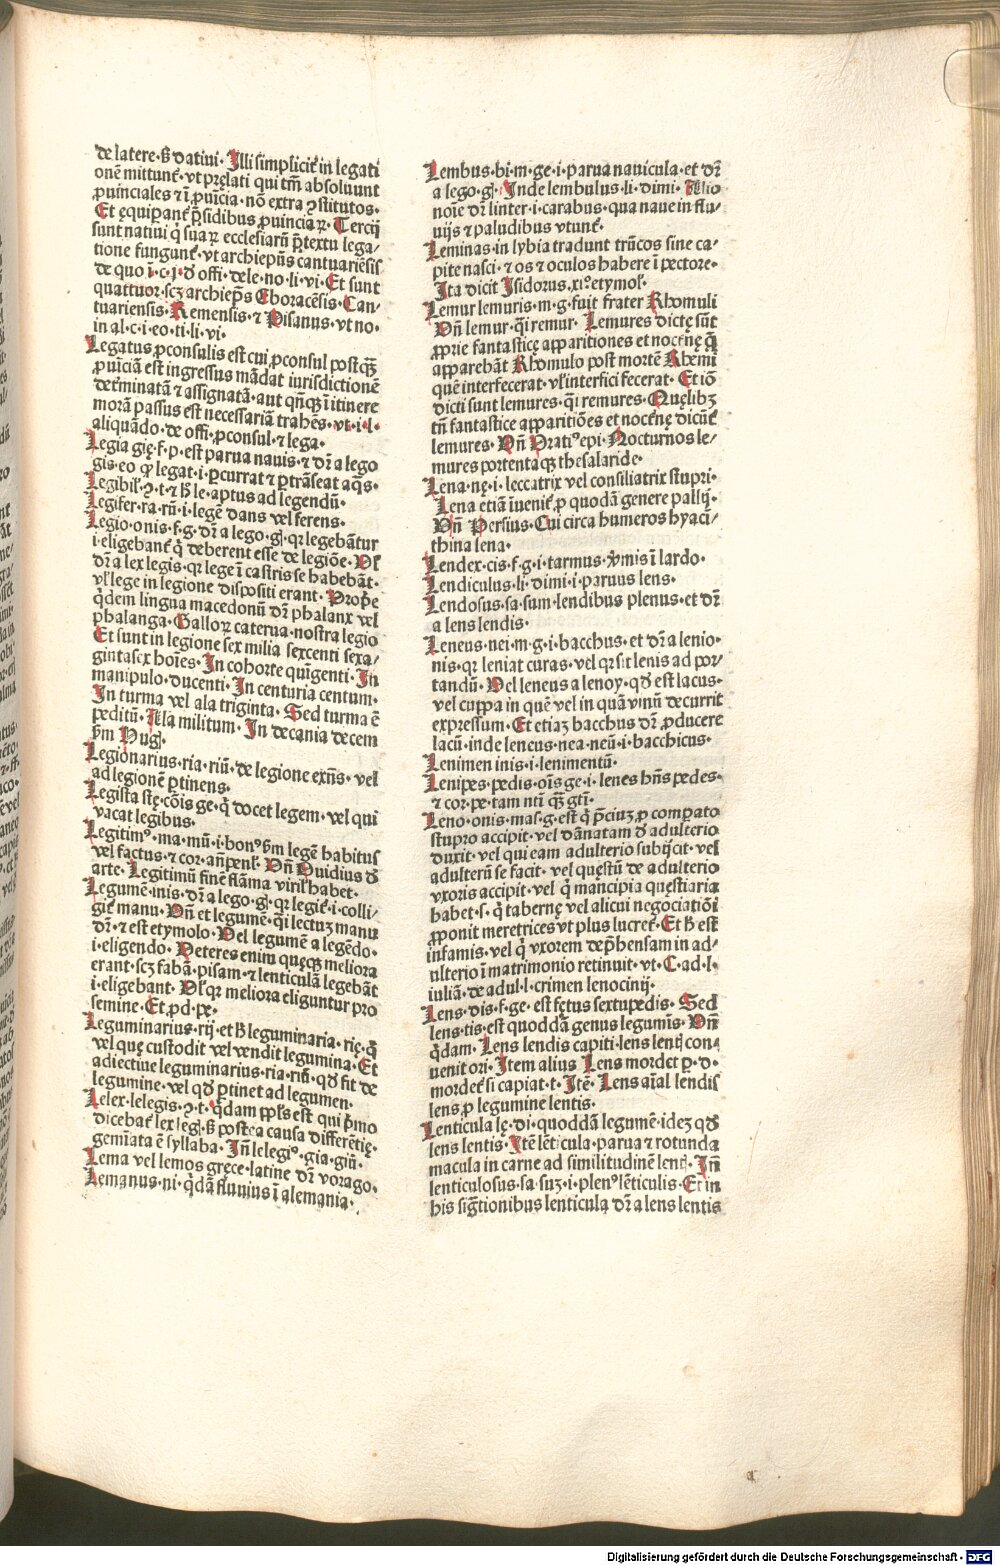 de latere·ß datiui· Illi simplicit̃ in legati
onē mittunt̃·vt pręlati qui tm̄ absoluunt
ꝓuinciales ⁊ ī ꝓuīcia·nō extra ꝯstitutos·
Et ęquipant̃ p̄sidibus ꝓuinciaꝝ· Tercij
sunt natiui q̇ suaꝝ ecclesiarū p̄textu lega/
tione fungunt̃·vt archiepūs cantuariēsis
de quo ī·c·j·ð offi·dele·no·li·vi· Et sunt
quattuor·scꝫ archiep̄s Eboracēsis· Can/
tuariensis· Remensis·⁊ Pisanus·vt no·
in al·c·i·eo·ti·li·vi·
Legatus ꝓconsulis est cui ꝓconsul postq̄ꝫ
ꝓuīciā est ingressus mādat iurisdictionē
determinatā ⁊ assignatā·aut qn̄qꝫ ī itinere
morā passus est necessariā trahēs·vt·i·l·
aliquādo·de offi·ꝓconsul·⁊ lega·
Legia gię·f·p·est parua nauis·⁊ dr̄ a lego
gis·eo ꝙ legat·i·ꝑcurrat ⁊ ꝑtrāseat aq̄s·
Legibil̓·ꝯ·t·⁊ ħ le·aptus ad legendū·
Legifer·ra·rū·i·legē dans vel ferens·
Legio·onis·f·g·dr̄ a lego·gꝭ·qꝛ legebātur
i·eligebant̃ q̇ deberent esse de legiōe· Vl̓
dr̄ a lex legis·qꝛ lege ī castris se habebāt·
vl̓ lege in legione dispositi erant· Prop̓e
q̇dem lingua macedonū dr̄ phalanx vel
phalanga· Galloꝝ caterua·nostra legio
Et sunt in legione sex milia sexcenti sexa/
gintasex hoīes· In cohorte quīgenti· In
manipulo·ducenti· In centuria centum·
In turma vel ala triginta· Sed turma ē
peditū· Ala militum· In decania decem
ẜm Hug̓·
Legionarius·ria·riū·de legione exn̄s·vel
ad legionē ꝑtinens·
Legista stę·cōis ge·q̇ docet legem·vel qui
vacat legibus·
Legitimꝰ·ma·mū·i·bonꝰ ẜm legē habitus
vel factus·⁊ cor·an̄penl̓· Vn̄ Ouidius ð
arte· Legitimū finē flāma viril̓ habet·
Legumē·inis·dr̄ a lego·gꝭ·qꝛ legit̃·i·colli/
git̃ manu· Vn̄ et legumē·q̇i lectuꝫ manu
dr̄·⁊ est etymolo· Vel legumē a legēdo·
i·eligendo· Veteres enim quęqꝫ meliora
erant·scꝫ fabā·pisam·⁊ lenticulā legebāt
i·eligebant· Vl̓ qꝛ meliora eliguntur pro
semine· Et ꝓd·pe·
Leguminarius·rij·et ħ leguminaria·rię·q̇
vel quę custodit vel vendit legumina· Et
adiectiue leguminarius·ria·riū·qð fit de
legumine·vel qð ꝑtinet ad legumen·
Lelex·lelegis·ꝯ·t·q̇dam ppl̓s est qui p̄mo
dicebat̃ lex legꝭ·ß postea causa differētię·
gemīata ē syllaba· In̄ lelegiꝰ·gia·giū·
Lema vel lemos gręce·latine dr̄ vorago·
Lemanus·ni·q̇dā fluuius ī alemania·
Lembus·bi·m·ge·i·parua nauicula·et dr̄
a lego·gꝭ· Inde lembulus·li·dimi· Alio
noīe dr̄ linter·i·carabus·qua naue in flu/
uijs ⁊ paludibus vtunt̃·
Leminas·in lybia tradunt trūcos sine ca/
pite nasci·⁊ os ⁊ oculos habere ī pectore·
Ita dicit Isidorus·xi·etymol̓·
Lemur lemuris·m·g·fuit frater Rhomuli
Vn̄ lemur·q̇i remur· Lemures dictę sūt
ꝓprie fantasticę apparitiones et noct̓nę q̄
apparebāt Rhomulo post mortē Rhemi
quē interfecerat·vl̓ interfici fecerat· Et iō
dicti sunt lemures·q̇i remures· Quęlibꝫ
tn̄ fantastice apparitiōes et noct̓nę dicūt̃
lemures· Vn̄ Oratiꝰ epi· Nocturnos le/
mures portentaqꝫ thesalaride·
Lena·nę·i·leccatrix vel consiliatrix stupri·
Lena etiā īuenit̃ ꝓ quodā genere pallij·
Vn̄ Persius· Cui circa humeros hyaci/
thina lena·
Lendex·cis·f·g·i·tarmus·v̓mis ī lardo·
Lendiculus·li·dimi·i·paruus lens·
Lendosus·sa·sum·lendibus plenus·et dr̄
a lens lendis·
Leneus·nei·m·g·i·bacchus·et dr̄ a lenio·
nis·qꝛ leniat curas·vel qꝛ sit lenis ad por/
tandū· Vel leneus a lenoy·qð est lacus·
vel cuppa in quē vel in quā vinū decurrit
expressum· Et etiaꝫ bacchus dr̄ ꝓducere
lacū·inde leneus·nea·neū·i·bacchicus·
Lenimen inis·i·lenimentū·
Lenipes·pedis·oīs ge·i·lenes hn̄s pedes·
⁊ cor·pe·tam nt̄i q̄ꝫ gt̄i·
Leno·onis·mas·g·est q̇ p̄ciuꝫ ꝓ comparato
stupro accipit·vel dānatam ð adulterio
duxit·vel qui eam adulterio subijcit·vel
adulterū se facit·vel quęstū de adulterio
vxoris accipit·vel q̇ mancipia quęstiaria
habet·s·q̇ tabernę vel alicui negociatiōi
ꝓponit meretrices vt plus lucret̃· Et ħ est
infamis·vel q̇ vxorem dep̄hensam in ad/
ulterio ī matrimonio retinuit·vt·C·ad·l·
iuliā·de adul·l·crimen lenocinij·
Lens·dis·f·ge·est fętus sextupedis· Sed
lens·tis·est quoddā genus legumīs· Vn̄
q̇dam· Lens lendis capiti·lens lentꝭ con/
uenit ori· Item alius Lens mordet p·d·
mordet̃ si capiat·t· Itē· Lens aīal lendis
lens ꝓ legumine lentis·
Lenticula lę·di·quoddā legumē·ideꝫ qð
lens lentis· Itē lēticula·parua ⁊ rotunda
macula in carne ad similitudinē lentꝭ· In̄
lenticulosus·sa·suꝫ·i·plenꝰ lēticulis· Et in
his sigt̄ionibus lenticula dr̄ a lens lentis
Digitalisierung gefördert durch die Deutsche Forschungsgemeinschaft - DFG